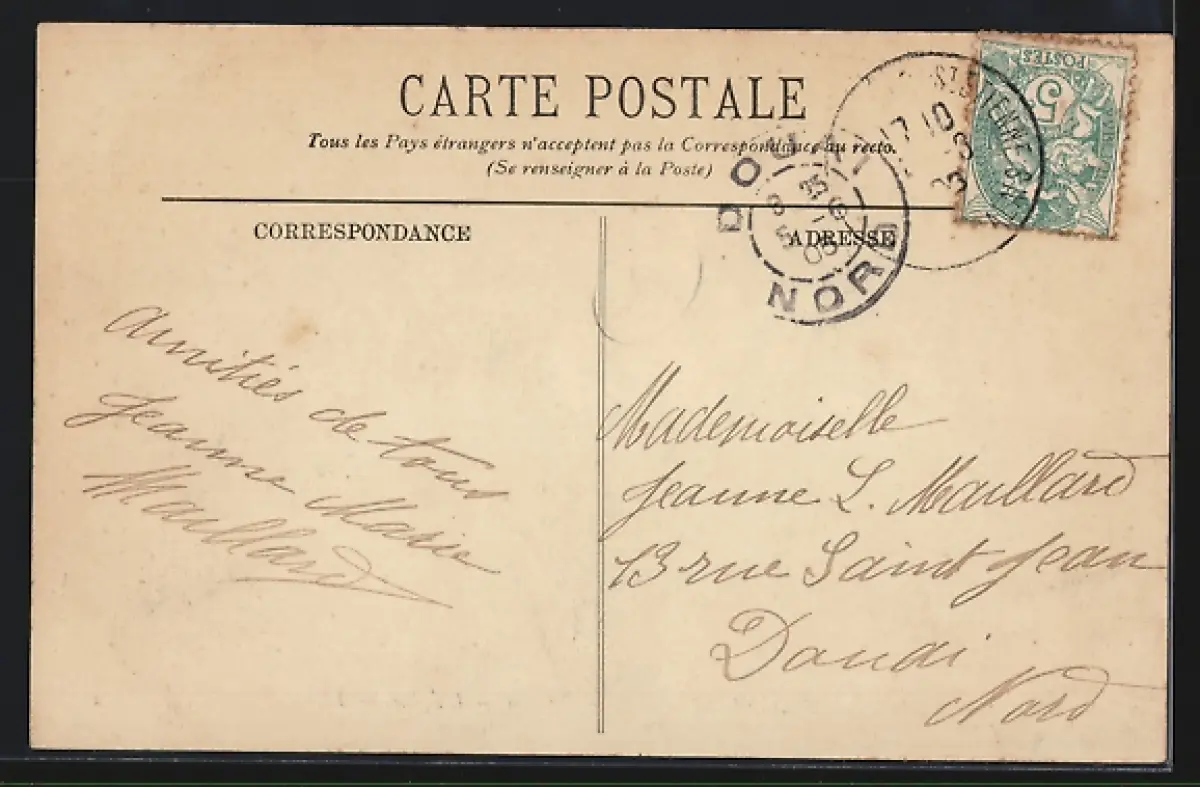 CARTE POSTALE
Tous les Pays étrangers n'acceptent pas la Correspondance au recto.
(Se renseigner à la Poste)
POSTES
5
ST ETIENNE
17 10
DOUAI
NORD
CORRESPONDANCE
ADRESSE
Amitiés de tous
Jeanne Marie
Maillard
Mademoiselle
Jeanne L. Maillard
13 rue Saint Jean
Douai
Nord